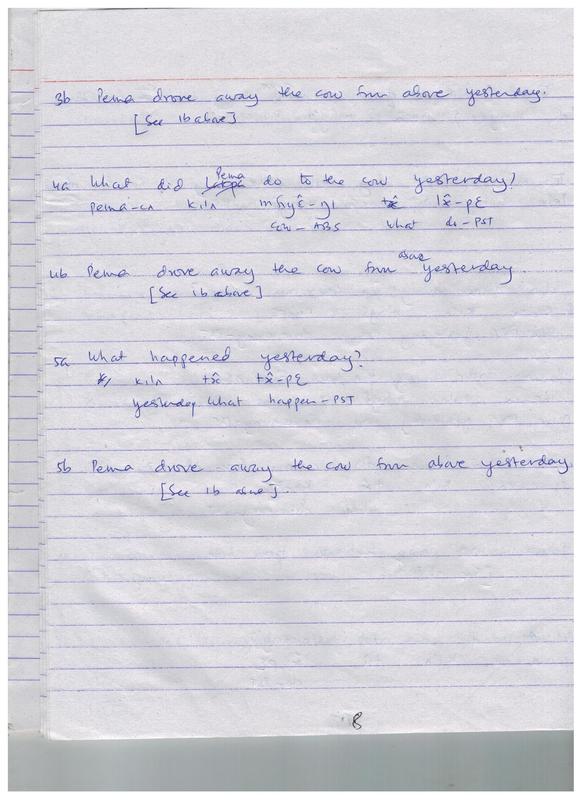 3b Pema drove away the cow from above yesterday.
[See 1b above]
4a What did Pema do to the cow yesterday?
pema-cʌ kilʌ tɕ̂ lɕ̂-pɛ
cow-ABS what do-PST
4b Pema drove away the cow from above yesterday.
[See 1b above]
5a What happened yesterday?
kilʌ
yesterday what happen-PST
5b Pema drove away the cow from above yesterday
[See 1b above].
8